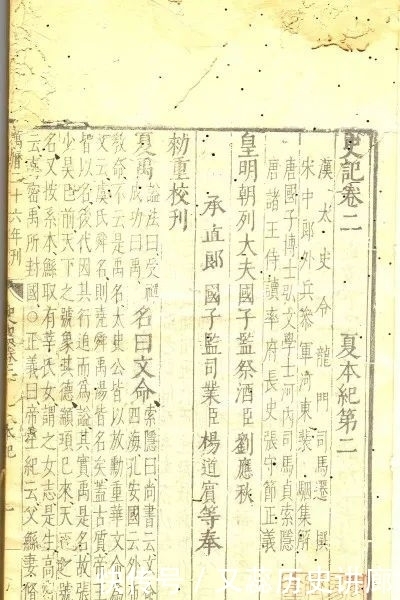 史記卷二 夏本紀第二
漢太史令龍門司馬遷撰
宋中郎外兵參軍河東裴駰集解
唐國子博士弘文學士河內司馬貞索隱
唐諸王侍讀率府長史張守節正義
皇明朝列大夫國子監祭酒臣劉應秋
承直郎國子監司業臣楊道賓等奉
勑重校刊
夏禹 謚法曰受禪成功曰禹 名曰文命 索隱曰尚書云文命四海孔安國云外布
教命不云是禹名太史公皆以放勳重華文命爲
文云虞氏舜名則堯舜禹湯皆名矣蓋古質帝王
皆以名後代因其行追而爲謚其實禹是名故張
少昊已前天下之號象其德顓頊已來天下之號
名又按系本鯀取有莘氏女謂之女志是生高密
云高密禹所封國○正義曰帝王紀云父鯀妻脩
萬曆二十六年刊 本紀